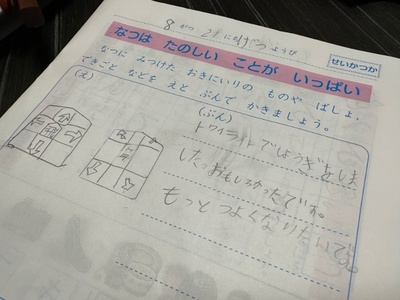 8 がつ 2 にち げつ ようび
せいかつか
なつは たのしい ことが いっぱい
なつに みつけた おきにいりの ものや ばしょ、
できごと などを えと ぶんで かきましょう。
(え)
(ぶん)
トワイライトでしょうぎをしま
した。おもしろかったです。
もっとつよくなりたいです。